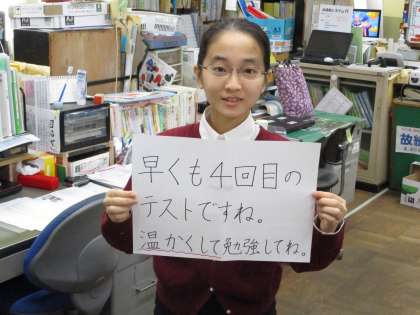 早くも4回目の
テストですね。
温かくして勉強してね。